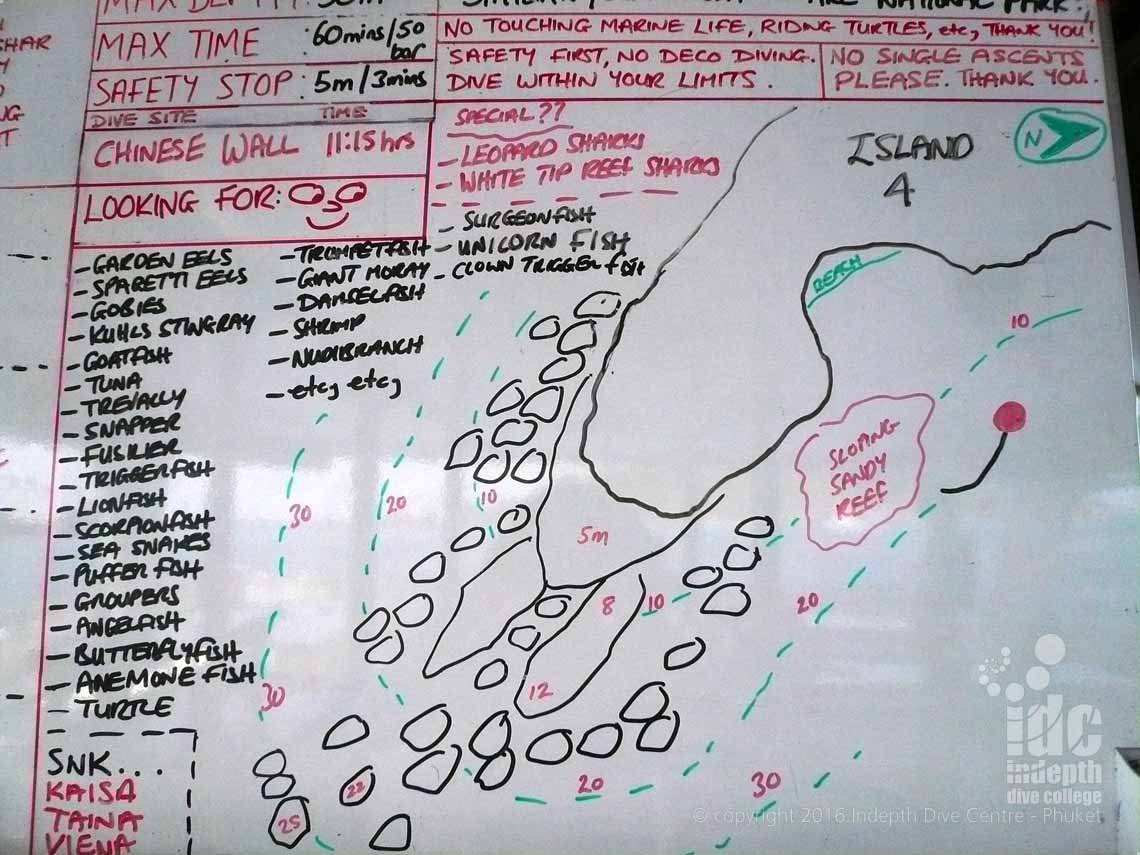 MAX TIME : 60mins/50 bar
SAFETY STOP : 5m/3mins
NO TOUCHING MARINE LIFE, RIDING TURTLES, etc, THANK YOU!
SAFETY FIRST, NO DECO DIVING.
DIVE WITHIN YOUR LIMITS.
NO SINGLE ASCENTS
PLEASE. THANK YOU.
DIVE SITE TIME
CHINESE WALL 11:15hrs
LOOKING FOR:
SPECIAL ??
- LEOPARD SHARKS
- WHITE TIP REEF SHARKS
- SURGEONFISH
- UNICORN FISH
- CLOWN TRIGGER fish
- GARDEN EELS
- SPARETTI EELS
- GOBIES
- KUHLS STINGRAY
- GOATFISH
- TUNA
- TREVALLY
- SNAPPER
- FUSILIER
- TRIGGERFISH
- LIONFISH
- SCORPIONFISH
- SEA SNAKES
- PUFFER FISH
- GROUPERS
- ANGELFISH
- BUTTERFLYFISH
- ANEMONE FISH
- TURTLE
- TRUMPETFISH
- GIANT MORAY
- DAMSELFISH
- SHRIMP
- NUDIBRANCH
- etc, etc,
SNK...
KAISA
TAINA
VIENA
ISLAND
4
N
BEACH
10
SLOPING
SANDY
REEF
30
20
10
5m
8
10
20
30
12
22
25
20
30
idc
indepth
dive college
© copyright 2016.Indepth Dive Centre - Phuket